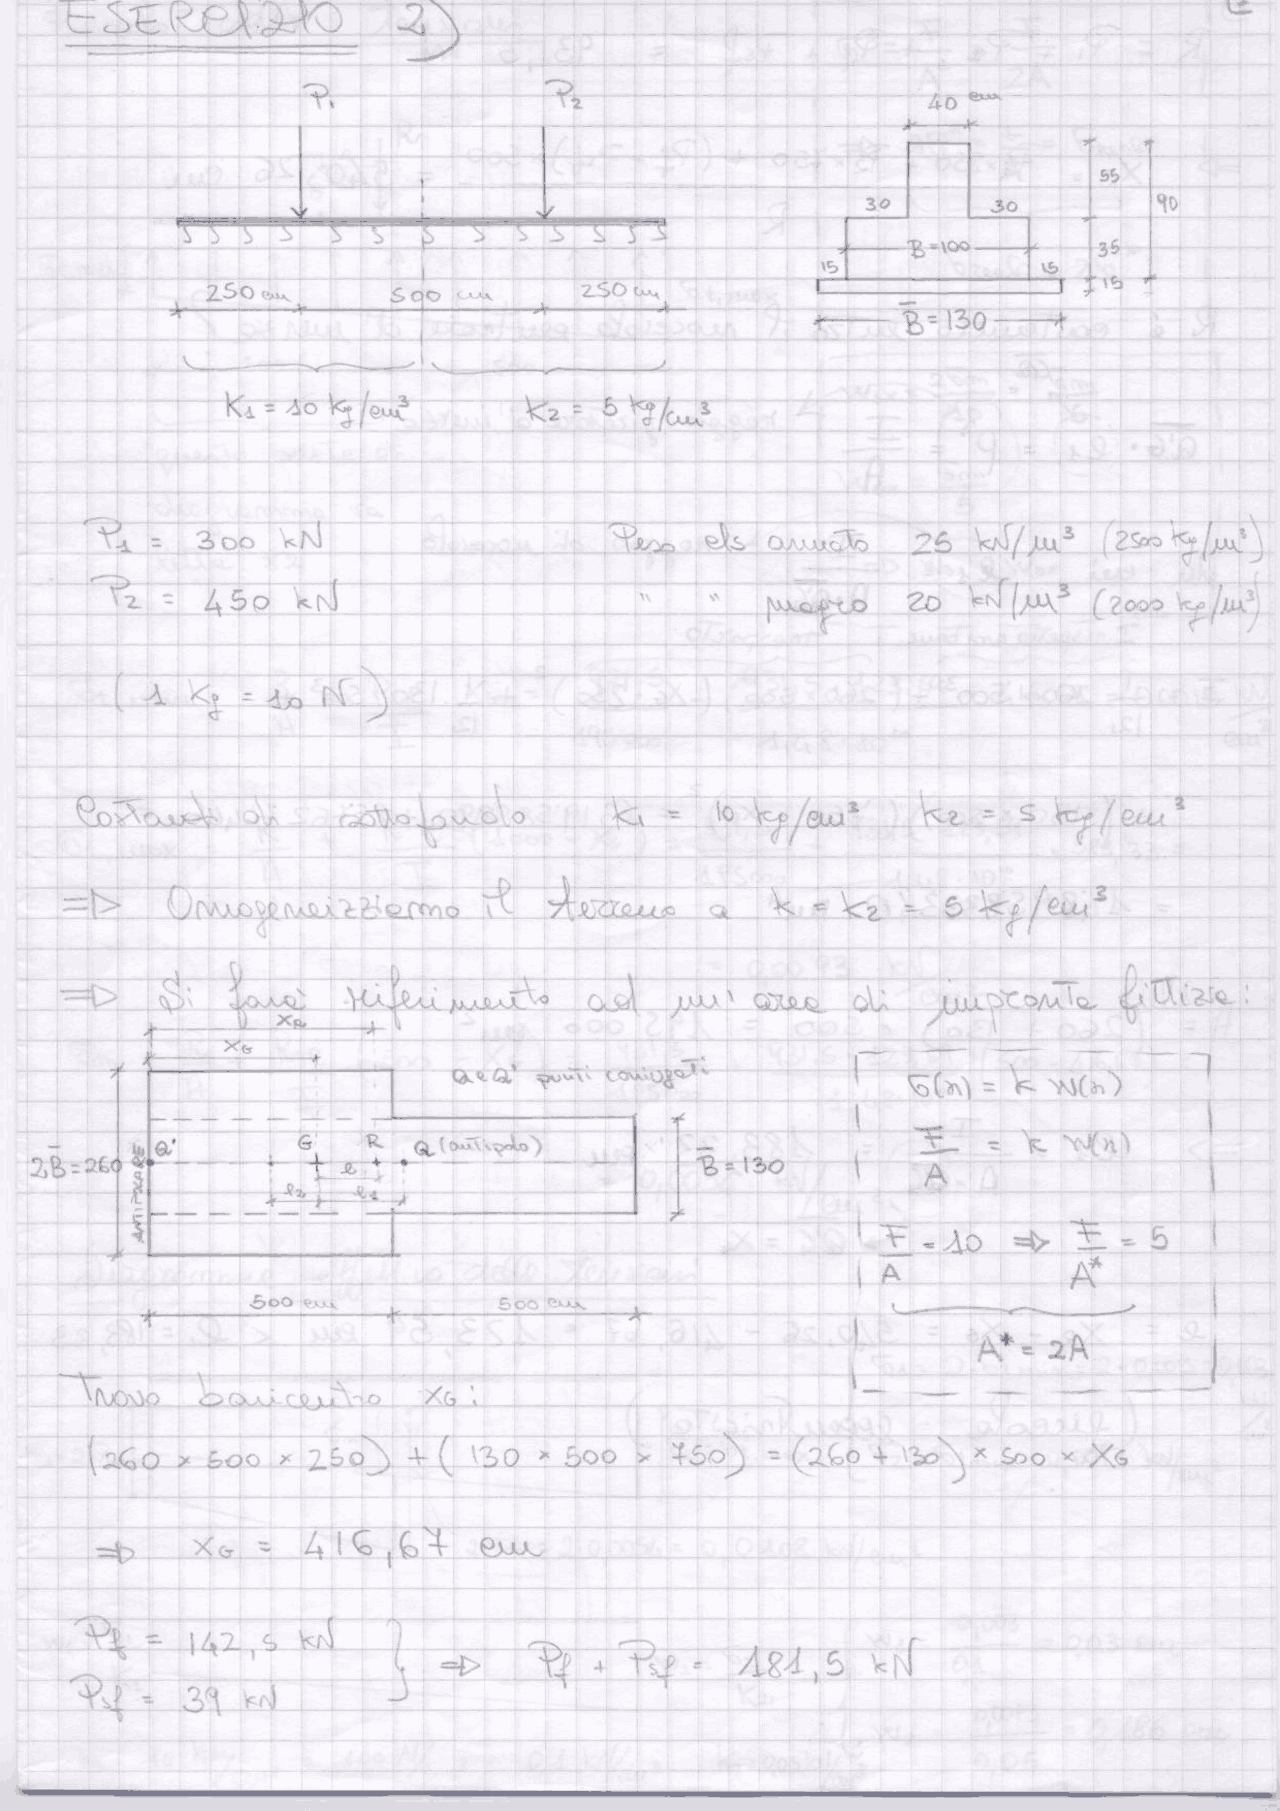 ESERCIZIO 2)
P1 P2
40 cm
55
90
30 30
B=100
35
15 15
15
B̅=130
250 cm 500 cm 250 cm
K1 = 10 kg/cm³ K2 = 5 kg/cm³
P1 = 300 kN Peso cls armato 25 kN/m³ (2500 kg/m³)
P2 = 450 kN " " magro 20 kN/m³ (2000 kg/m³)
(1 Kg = 10 N)
Costanti di sottofondo K1 = 10 kg/cm³ K2 = 5 kg/cm³
=> Omogeneizziamo il terreno a k = k2 = 5 kg/cm³
=> Si farà riferimento ad un'area di impronta fittizia:
XR
XG
Q e Q' punti coniugati
2B̅=260
ANTIPOLARE
Q' G R Q (antipolo)
e
e2 e1
B̅=130
500 cm 500 cm
σ(x) = k w(x)
F/A = k w(x)
F/A = 10 => F/A* = 5
A* = 2A
Trovo baricentro XG:
(260 × 500 × 250) + (130 × 500 × 750) = (260 + 130) × 500 × XG
=> XG = 416,67 cm
Pf = 142,5 kN
Psf = 39 kN
=> Pf + Psf = 181,5 kN